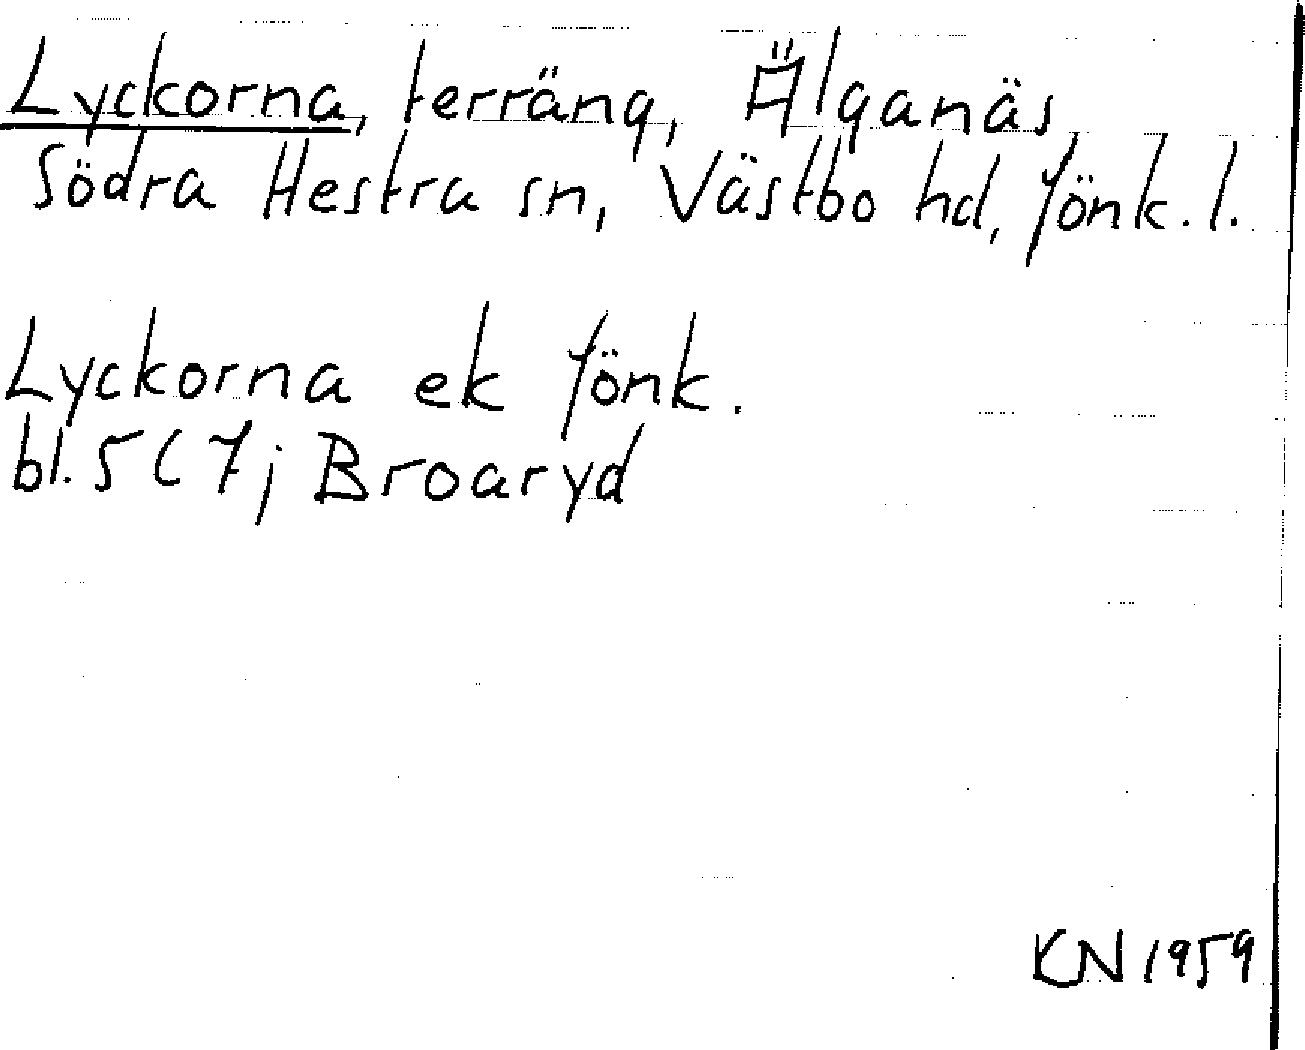 Lyckorna, terräng, Älganäs
Södra Hestra sn, Västbo hd, Jönk. l.
Lyckorna ek Jönk.
bl. 5 C 7 j Broaryd
KN 1959